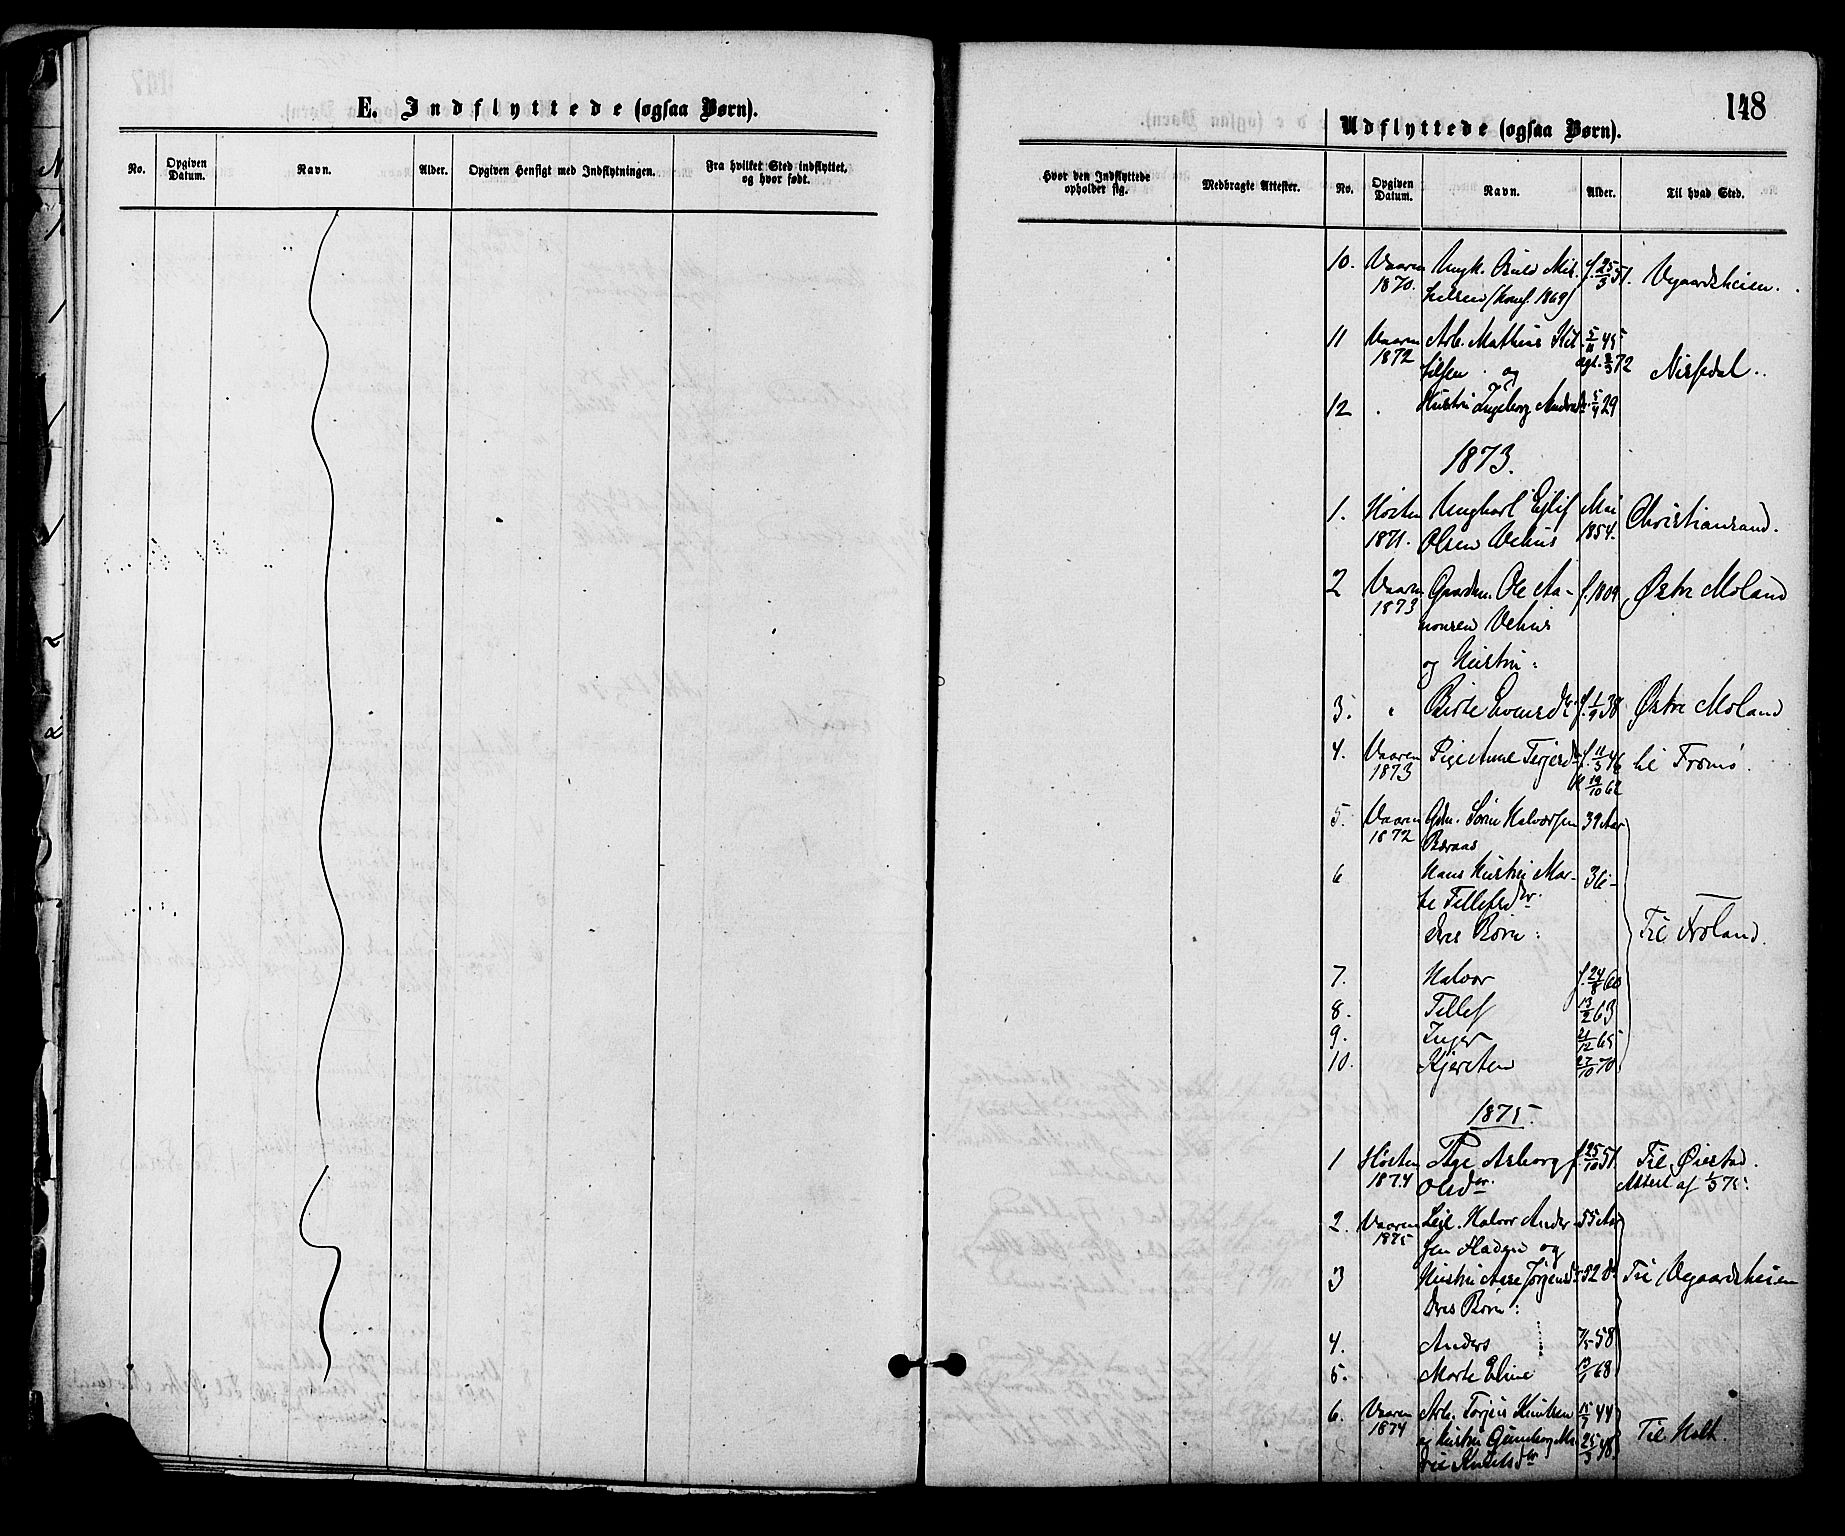 E. Indflyttede (ogsaa Børn).
No. Opgiven Datum. Navn. Alder. Opgiven Hensigt med Indflytningen. Fra hvilket Sted indflyttet, og hvor født.
148
Udflyttede (ogsaa Børn).
Hvor den Indflyttede opholder sig. Medbragte Attester. No. Opgiven Datum. Navn. Alder. Til hvad Sted.
10. Vaaren Ungk. f. 25/3 51. Vegaardsheien.
1870. (Konf. 1869)
11 Vaaren Arb. Mathias 5/11 45
1872 og 72 Nissedal.
12 Hustru Ingeborg 5/4 29
1873.
1. Høsten Ungkarl Ejlif Mai Christiansand.
1871. Olsen Vehus 1854.
2 Vaaren Gaardm. Ole Aa- f. 1809 Østre Moland
1873 nonsen Vehus
og Hustru:
3. Birte Evensdr f. 1/9 38 Østre Moland
4. Vaaren Pige Anne Terjesdr f. 11/3 46 til Tromø.
1873 19/10 62
5. Vaaren Gdm. Søren Halvorsen 39 Aar
1872 Beraas
6 Hans Hustru Mar- 36 -
te Tellefsdr.
Deres Børn: Til Froland.
7. Halvor f. 24/8 60
8. Tellef 13/2 63
9. Inger 21/12 65
10. Kjersten 27/10 70
1875.
1 Høsten Pige Asborg f. 25/10 51. Til Øiestad.
1874 Olsdr. Attest af 1/3 75.
2. Vaaren Leil. Halvor Ander- 55 Aar
1875 sen og
3 Hustru Aase Jørgensdr 52 do Til Vegaardsheien
Deres Børn:
4. Anders 7/5 58
5. Marte Eline 68
6. Vaaren Arb. Torjus Knutsen 15/7 44
1874 og Hustru Gunborg Ma- 25/3 48. Til Holt.
rie Knutsdr